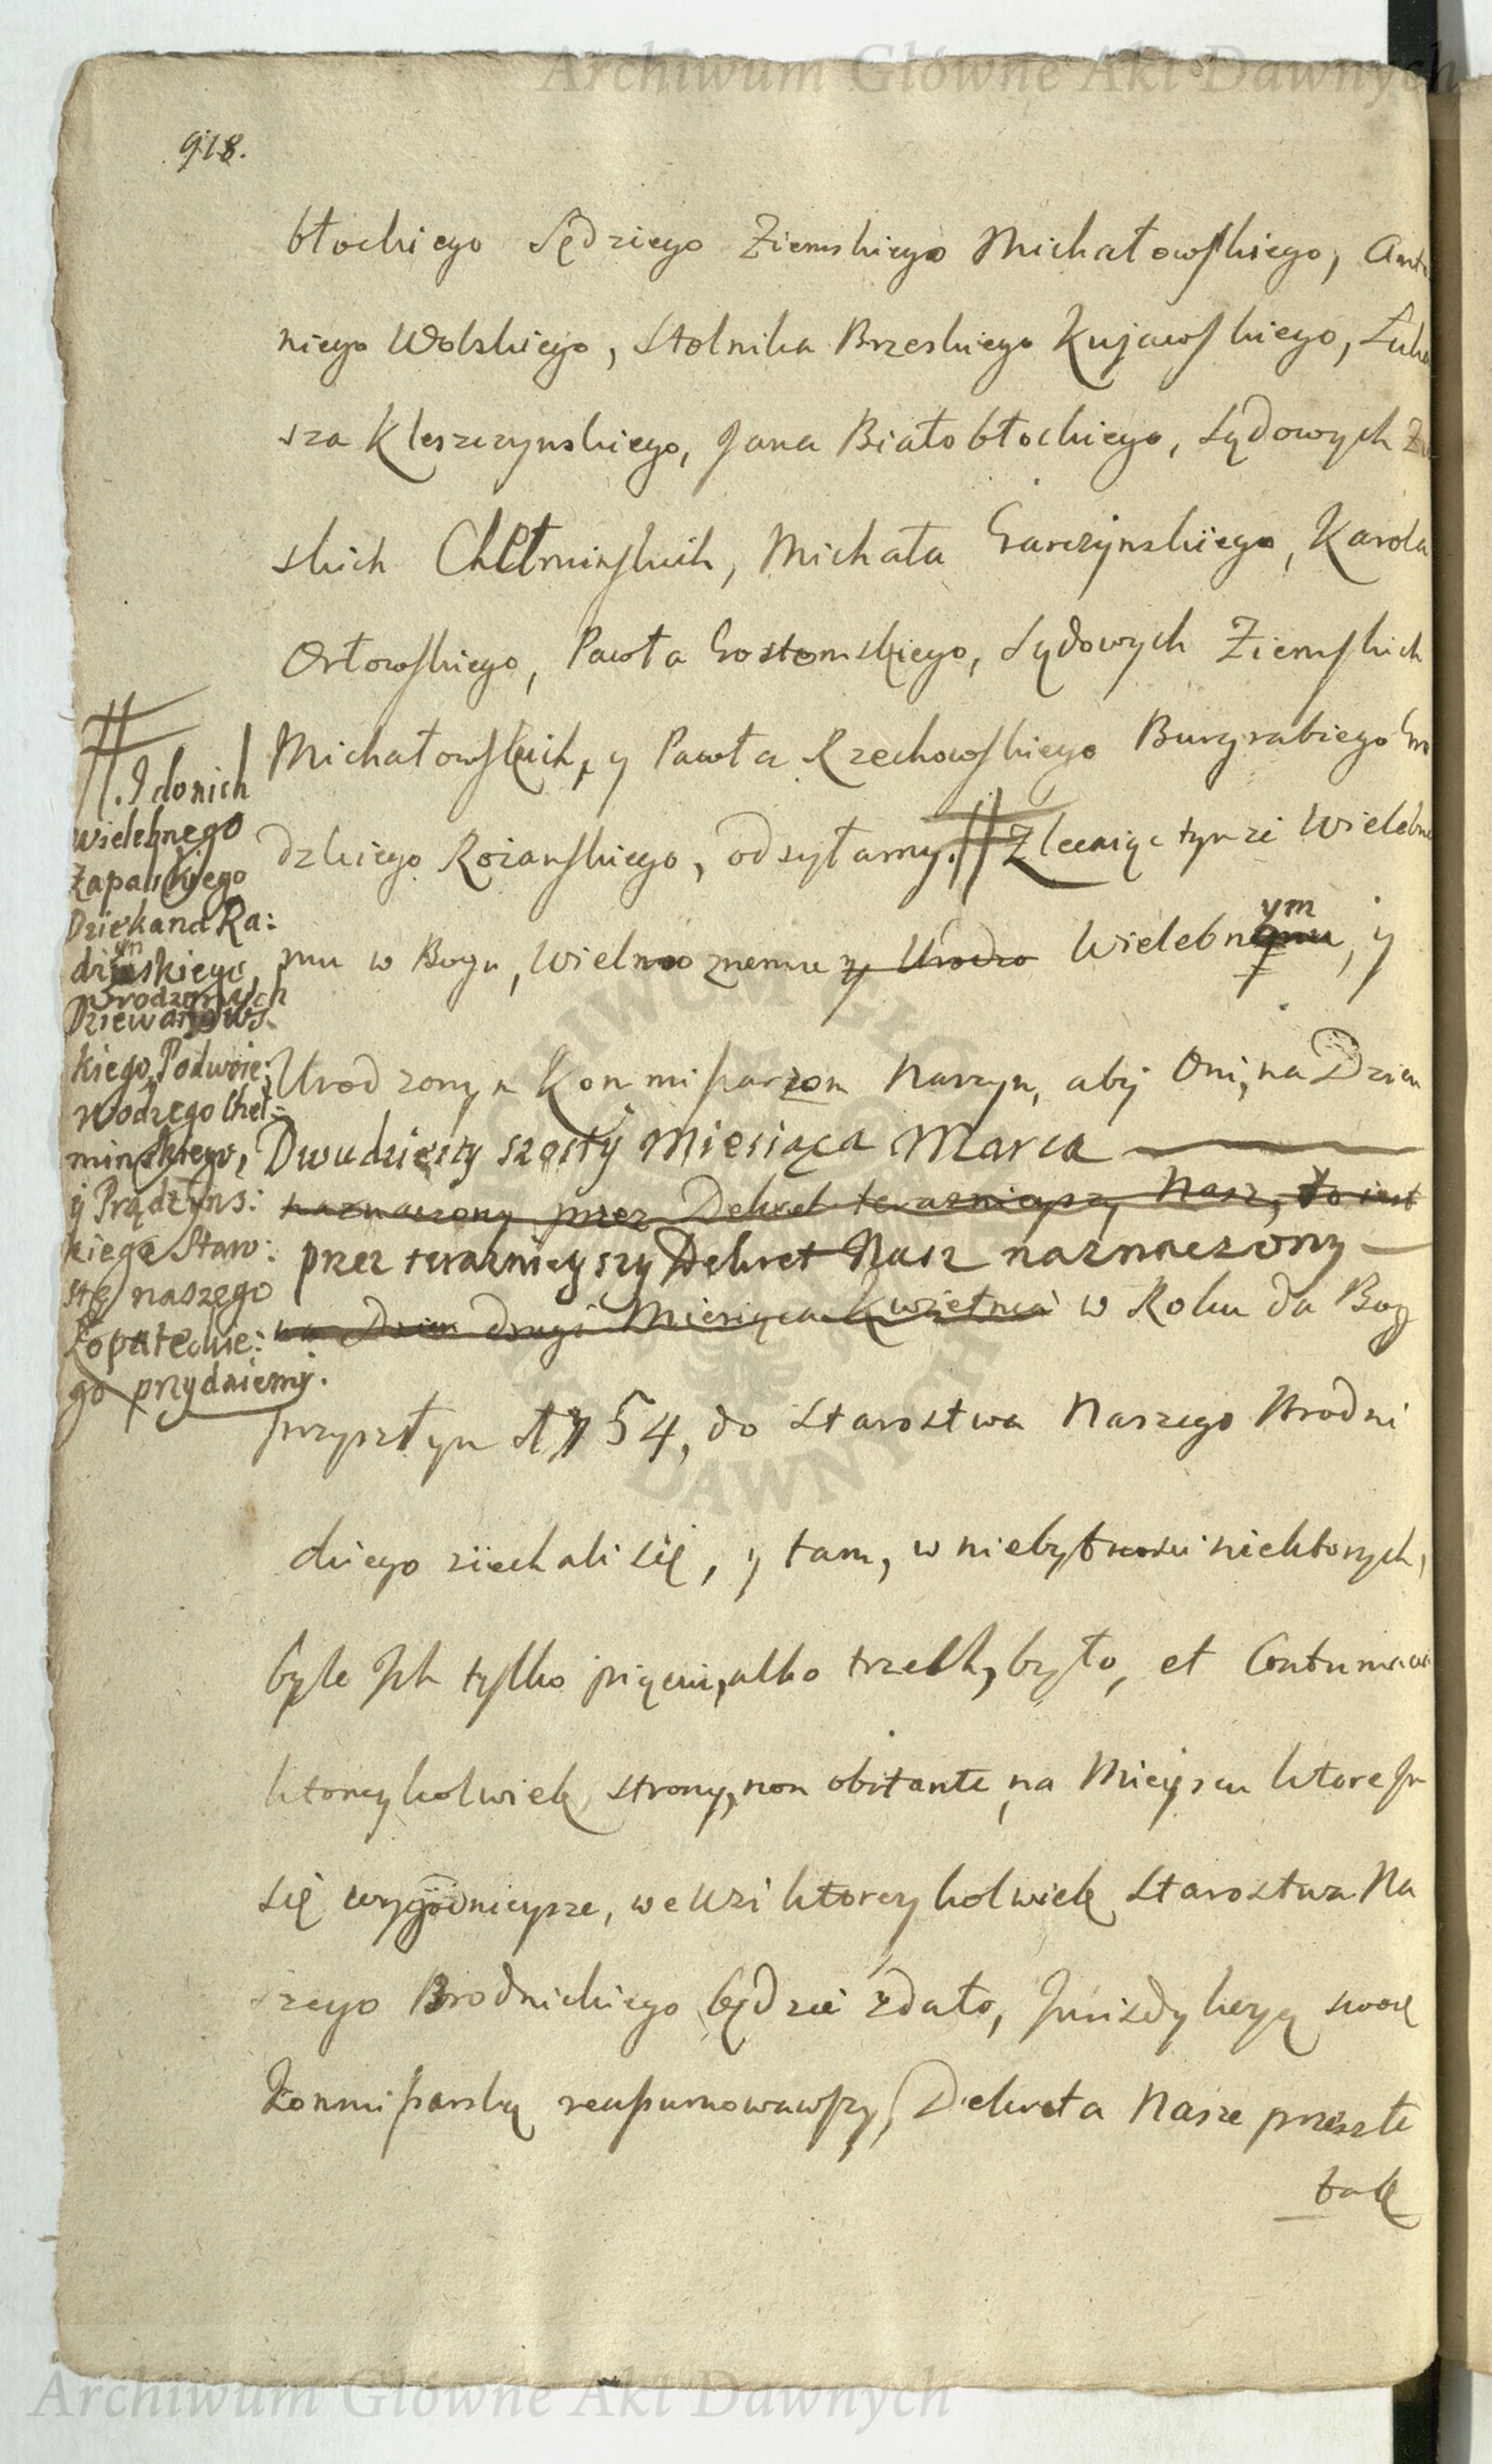 918.
błockiego Sędziego Ziemskiego Michałowskiego, Anto
niego Wolskiego, Stolnika Brzeskiego Kujawskiego, Łuka
sza Kleszczynskiego, Jana Białobłockiego, Sądowych
skich Chełminskich, Michała Garczynskiego, Karola
Orłowskiego, Pawła Gostomskiego, Sądowych Ziemskich
Michałowskich, y Pawła Rzechowskiego Burgrabiego Gro
dzkiego Rożanskiego, odsyłamy. # Zlecaiąc tymże Wielebne
mu w Bogu, Wielmożnemu y Urodzo Wielebnym, y
Urodzonym Kommissarzom Naszym, aby Oni, na Dzien
Dwudziesty szosty Miesiąca Marca
naznaczony przez Dekret teraznieyszy Nasz, to iest
przez teraznieyszy Dekret Nasz naznaczony
na Dzien drugi Miesiąca Kwietnia w Roku da Bog
przyszłym 1754, do Starostwa Naszego Brodni
ckiego ziechali się, y tam, w niebytnosci niektorych,
byle Jch tylko pięciu, albo trzech, było, et Contumacia
ktoreykolwiek strony, non obstante, na Mieyscu ktore Jm
się wygodnieysze, we Wsi ktoreykolwiek Starostwa Na
szego Brodnickiego będzie zdało, Jurizdykcyą swoię
Kommissarską reassumowawszy, Dekreta Nasze przeszłe
tak
#. I do nich
wielebnego
Zapalskiego
Dziekana Ra:
dzymskiego,
Urodzonych
Dziewanows
kiego, Podwoie:
wodzego Cheł:
minskiego,
y Prądzyns:
kiego Staro:
stę naszego
Łopateckie:
go przydaiemy.